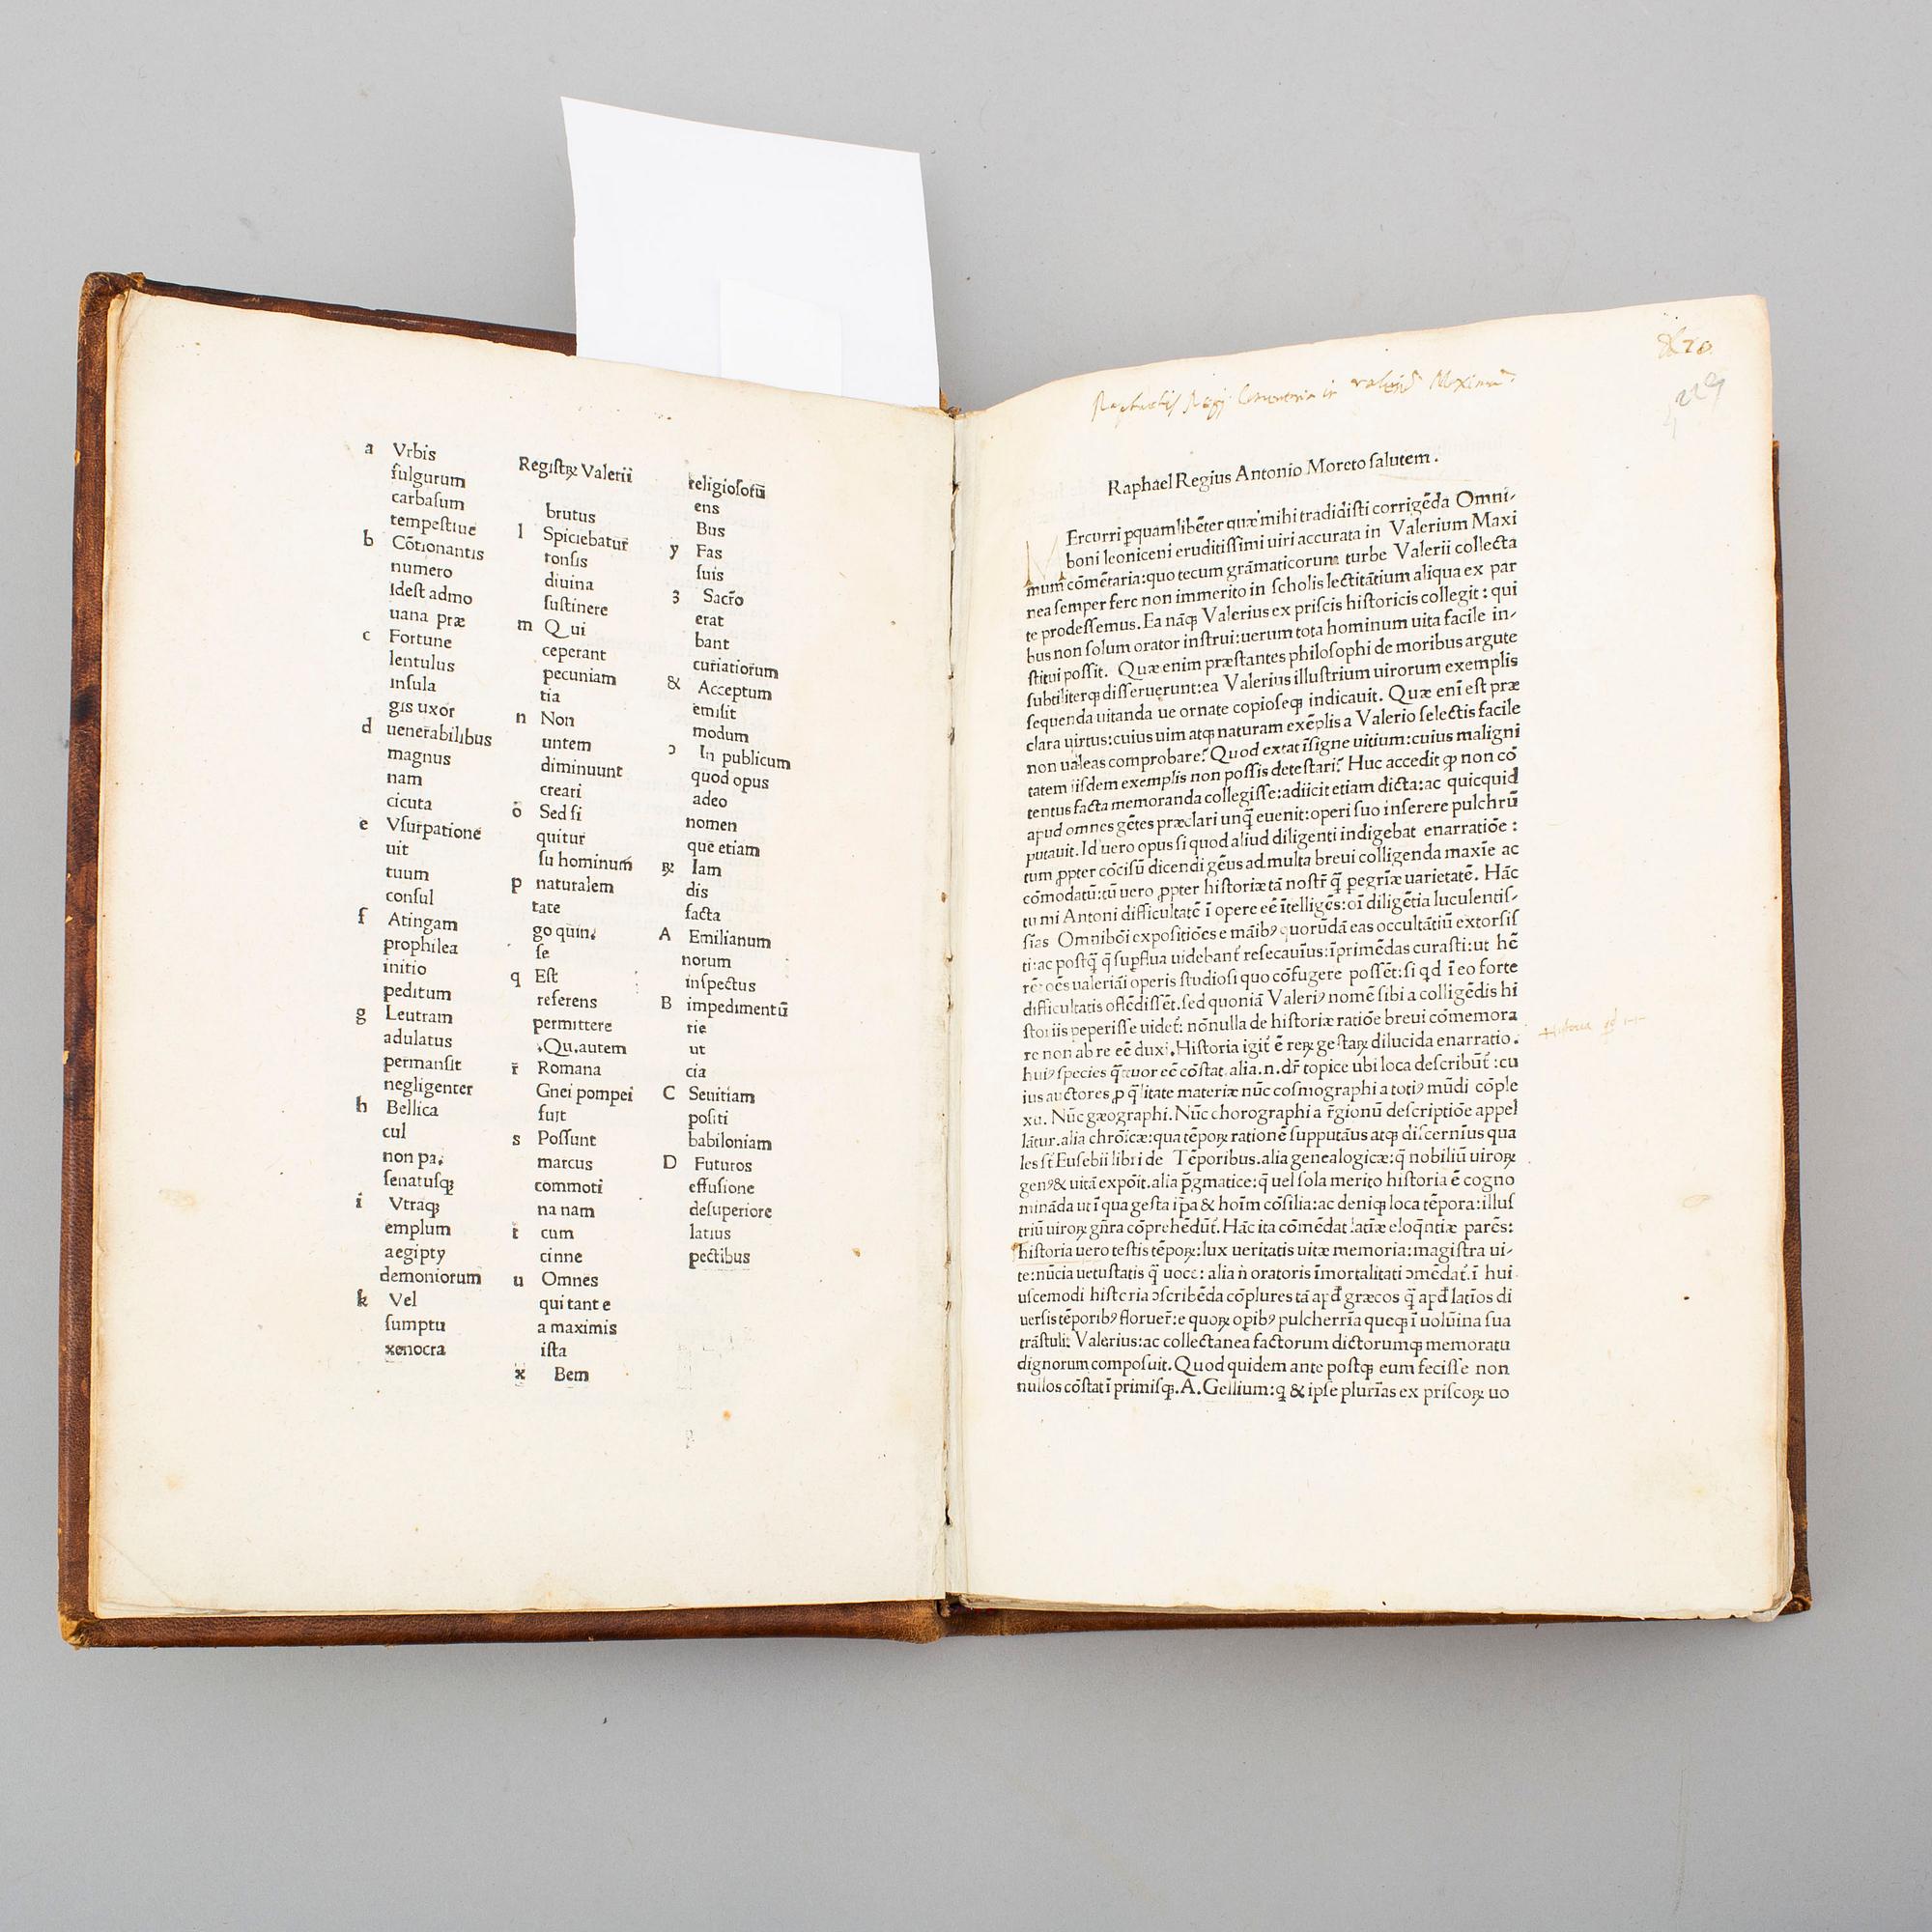 Registꝝ Valerii
a Vrbis
fulgurum
carbasum
tempestiue
b Cōtionantis
numero
Idest admo
uana præ
c Fortune
lentulus
insula
gis uxor
d uenerabilibus
magnus
nam
cicuta
e Vsurpatione
uit
tuum
consul
f Atingam
prophilea
initio
peditum
g Leutram
adulatus
permansit
negligenter
h Bellica
cul
non pa.
senatusqꝫ
i Vtraqꝫ
emplum
aegipty
demoniorum
k Vel
sumptu
xenocra
brutus
l Spiciebatur
tonsis
diuina
sustinere
m Qui
ceperant
pecuniam
tia
n Non
untem
diminuunt
creari
o Sed si
quitur
su hominum
p naturalem
tate
go quin.
se
q Est
referens
permittere
.Qu.autem
r Romana
Gnei pompei
fuit
s Possunt
marcus
commoti
na nam
t cum
cinne
u Omnes
qui tant e
a maximis
ista
x Bem
religiosorū
ens
Bus
y Fas
suis
3 Sacro
erat
bant
curiatiorum
& Acceptum
emisit
modum
ɔ In publicum
quod opus
adeo
nomen
que etiam
ꝝ Iam
dis
facta
A Emilianum
norum
inspectus
B impedimentū
rie
ut
cia
C Seuitiam
positi
babiloniam
D Futuros
effusione
desuperiore
latius
pectibus
Raphael Regius Antonio Moreto salutem.
Ercurri ꝑquam libēter quæ mihi tradidisti corrigēda Omni-
boni leoniceni eruditissimi uiri accurata in Valerium Maxi
mum cōmētaria: quo tecum grāmaticorum turbe Valerii collecta
nea semper fere non immerito in scholis lectitātium aliqua ex par
te prodessemus. Ea nāqꝫ Valerius ex priscis historicis collegit: qui
bus non solum orator instrui: uerum tota hominum uita facile in-
stitui possit. Quæ enim præstantes philosophi de moribus argute
subtiliterqꝫ disseruerunt: ea Valerius illustrium uirorum exemplis
sequenda uitanda ue ornate copioseqꝫ indicauit. Quæ enī est præ
clara uirtus: cuius uim atqꝫ naturam exēplis a Valerio selectis facile
non ualeas comprobare? Quod extat īsigne uitium: cuius maligni
tatem iisdem exemplis non possis detestari? Huc accedit ꝙ non cō
tentus facta memoranda collegisse: adiicit etiam dicta: ac quicquid
apud omnes gētes præclari unq̄ euenit: operi suo inserere pulchrū
putauit. Id uero opus si quod aliud diligenti indigebat enarratiōe:
tum ꝓpter cōcisū dicendi gēus ad multa breui colligenda maxīe ac
cōmodatū: tū uero ꝓpter historiæ tā nostr̄ q̄ ꝑegriæ uarietatē. Hāc
tu mi Antoni difficultatē ī opere eē ītelligēs: oī diligētia luculentis-
sīas Omnibōi expositiōes e māibꝰ quorūdā eas occultātiū extorsis
ti: ac postq̄ q̄ suꝑflua uidebant̄ resecauīus: īprimēdas curasti: ut hē
rē oēs ualeriāi operis studiosi quo cōfugere possēt: si qd ī eo forte
difficultatis offēdissēt. sed quoniā Valeriꝰ nomē sibi a colligēdis hi
storiis peperisse uidet̄: nōnulla de historiæ ratiōe breui cōmemora
re non ab re eē duxi. Historia igit̄ ē reꝝ gestaꝝ dilucida enarratio.
huiꝰ species q̄tuor eē cōstat. alia.n.dr̄ topice ubi loca describūt̄: cu
ius auctores ꝓ q̄litate materiæ nūc cosmographi a totiꝰ mūdi cōple
xu. Nūc gæographi. Nūc chorographi a r̄gionū descriptiōe appel
lātur. alia chrōicæ: qua tēpoꝝ rationē supputāus atqꝫ discernīus qua
les st̄ Eusebii libri de Tēporibus. alia genealogicæ: q̄ nobiliū uiroꝝ
genꝰ & uitā expōit. alia p̄gmatice: q̄ uel sola merito historia ē cogno
mināda ut ī qua gesta ip̄a & hoīm cōsilia: ac deniqꝫ loca tēpora: illus
triū uiroꝝ gn̄ra cōprehēdūt̄. Hāc ita cōmēdat latīæ eloq̄ntiæ parēs:
historia uero testis tēpoꝝ: lux ueritatis uitæ memoria: magistra ui-
te: nūcia uetustatis q̄ uoce: alia ń oratoris īmortalitati ɔmēdat̄. ī hui
uscemodi historia ɔscribēda cōplures tā apđ græcos q̄ apđ latīos di
uersis tēporibꝰ floruer̄: e quoꝝ oꝑibꝰ pulcherrīa queqꝫ ī uolūina sua
trāstulit Valerius: ac collectanea factorum dictorumqꝫ memoratu
dignorum composuit. Quod quidem ante postqꝫ eum fecisse non
nullos cōstat ī primisqꝫ. A. Gellium: q & ipse plurīas ex priscoꝝ uo